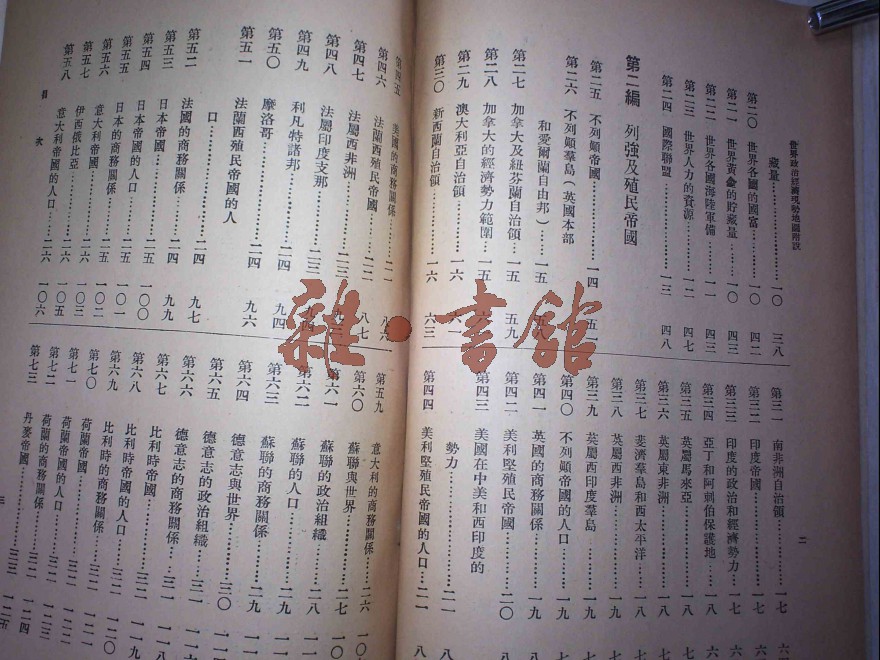 世界政治經濟現勢地圖附說
藏量…………一〇 三八
第二〇 世界各國的國富……一〇 四二
第二一 世界黃金的貯藏量……一〇 四三
第二二 世界各國海陸軍備……一一 四三
第二三 世界人力的資源……一二 四七
第二四 國際聯盟…………一三 四八
第二編 列強及殖民帝國
第二五 不列顛帝國…………一四 五一
第二六 不列顛羣島（英國本部
和愛爾蘭自由邦）……一五
第二七 加拿大及紐芬蘭自治領…一五 五九
第二八 加拿大的經濟勢力範圍…一五
第二九 澳大利亞自治領………一六
第三〇 新西蘭自治領…………一六 六三
第三一 南非洲自治領…………一七
第三二 印度帝國…………一七
第三三 印度的政治和經濟勢力…一七
第三四 亞丁和阿剌伯保護地…一八
第三五 英屬馬來亞…………一八
第三六 英屬東非洲…………一八
第三七 斐濟羣島和西太平洋…一八
第三八 英屬西非洲…………一八
第三九 英屬西印度羣島………一九
第四〇 不列顛帝國的人口……一九
第四一 英國的商務關係………一九
第四二 美利堅殖民帝國………二〇
第四三 美國在中美和西印度的
勢力…………二一
第四四 美利堅殖民帝國的人口…二一
二
第四五 美國的商務關係………二一 八六
第四六 法蘭西殖民帝國………二二 八七
第四七 法屬西非洲…………二三
第四八 法屬印度支那…………二三
第四九 利凡特諸邦…………二四
第五〇 摩洛哥…………二四
第五一 法蘭西殖民帝國的人
口…………二四 九七
第五二 法國的商務關係………二四 九九
第五三 日本帝國…………二五 一〇〇
第五四 日本帝國的人口………二五 一〇一
第五五 日本的商務關係………二五 一〇二
第五六 意大利帝國…………二六 一〇三
第五七 伊西俄比亞…………二六 一〇五
第五八 意大利帝國的人口……二六 一〇六
第五九 意大利的商務關係……二六
第六〇 蘇聯與世界…………二七
第六一 蘇聯的政治組織………二八
第六二 蘇聯的人口…………二九
第六三 蘇聯的商務關係………二九
第六四 德意志與世界…………三〇
第六五 德意志的政治組織……三一
第六六 德意志的商務關係……三一
第六七 比利時帝國…………三二
第六八 比利時帝國的人口……三二
第六九 比利時的商務關係……三二
第七〇 荷蘭帝國…………三二
第七一 荷蘭帝國的人口………三二
第七二 荷蘭的商務關係………三二
第七三 丹麥帝國…………三三
目 次
三
雜·書館